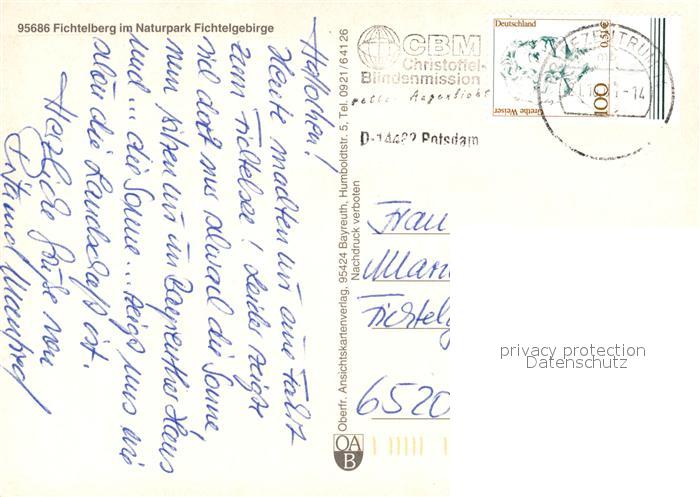 95686 Fichtelberg im Naturpark Fichtelgebirge
Hallöchen!
Heute machten wir eine Fahrt
zum Fichtelsee! Leider zeigt
sich dort nur die Sonne,
nun sitzen wir im Bayreuther Haus
und ... die Sonne ... zeigt uns wie
die Landschaft ist.
Herzliche Grüße von
Manfred
Oberfr. Ansichtskartenverlag, 95424 Bayreuth, Humboldtstr. 5, Tel. 0921/64126
Nachdruck verboten
CBM
Christoffel-
Blindenmission
rettet Augenlicht
D-14482 Potsdam
Deutschland
100
0,51€
Grethe Weiser
-14
Frau
Mari
Fichtelg
6520
OA
B
privacy protection
Datenschutz